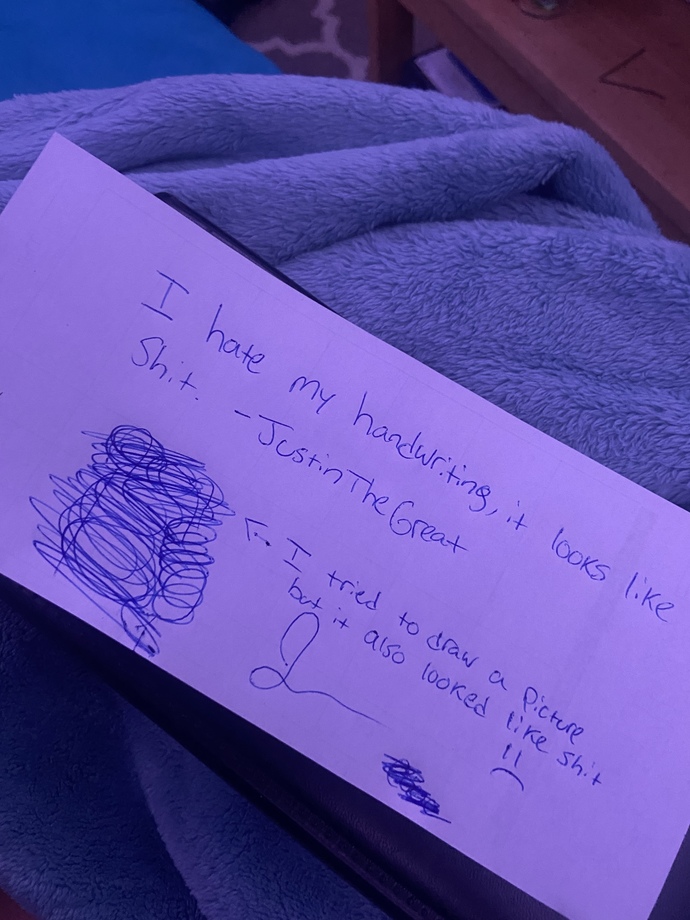 I hate my handwriting, it looks like
Shit. -JustinTheGreat
I tried to draw a picture
but it also looked like shit